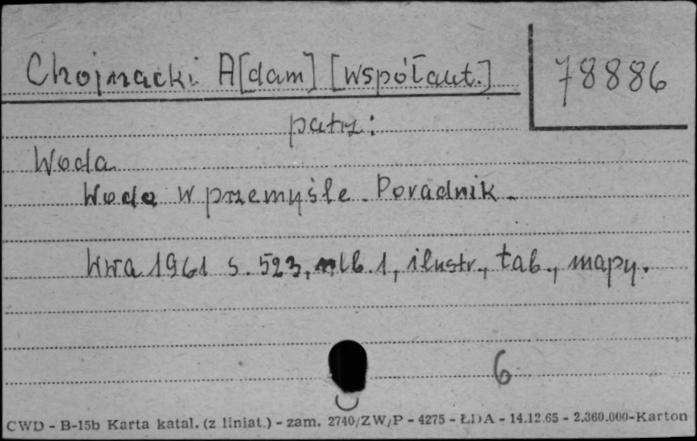 Chojnacki A[dam] [współaut.]
78886
patrz:
Woda
Woda w przemyśle. Poradnik.
Wwa 1961 s. 523, nlb. 1, ilustr., tab., mapy.
6
CWD - B-15b Karta katal. (z liniat.) - zam. 2740/ZW/P - 4275 - ŁDA - 14.12.65 - 2.360.000-Karton